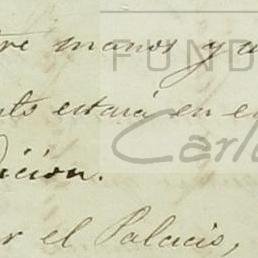 tre manos y a
FUND
nto estará en e
Carlo
dicion.
r el Palacio,